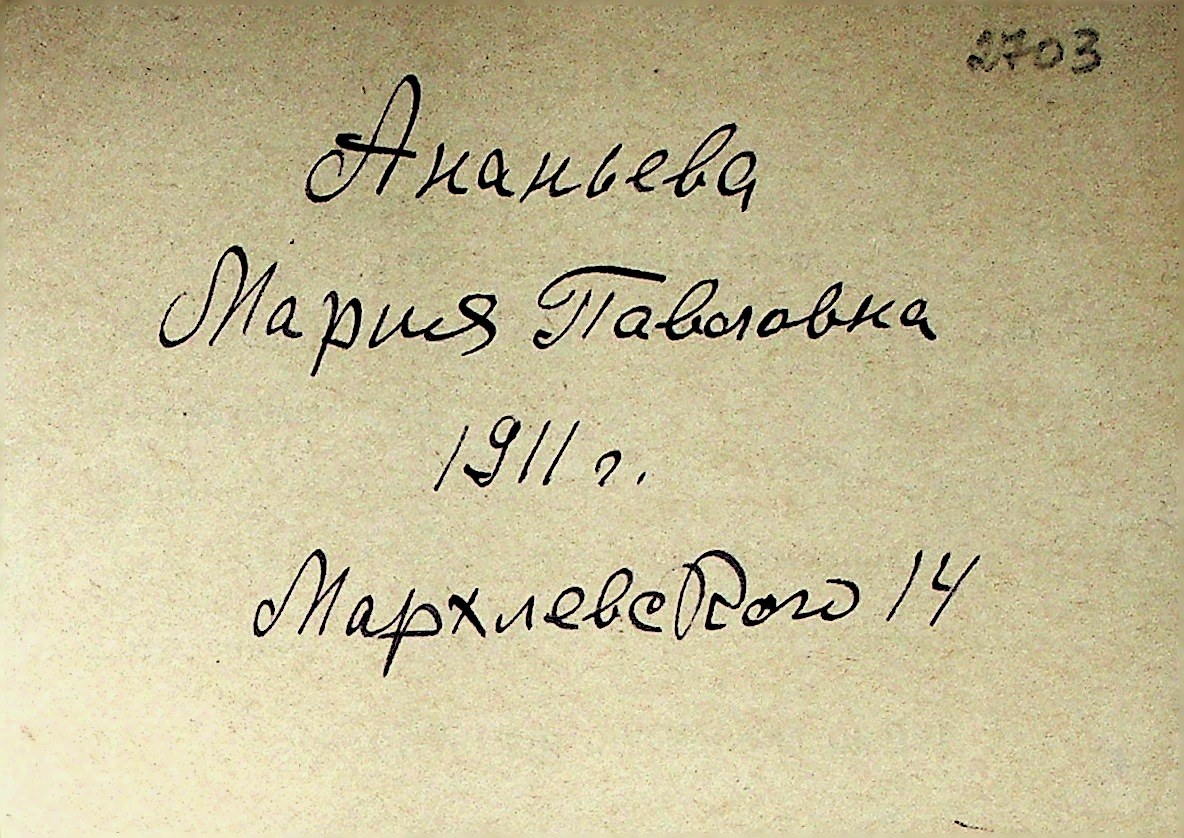 2703
Ананьева
Мария Павловна
1911 г.
Мархлевского 14